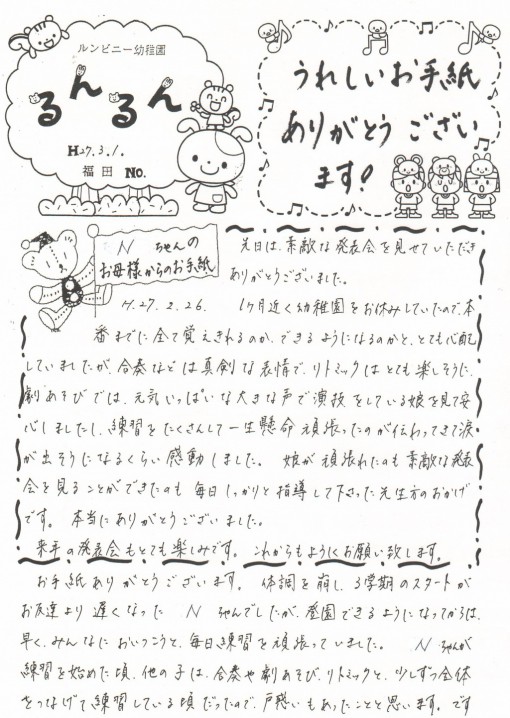 ルンビニー幼稚園
るんるん
H27.3.1.
福田 No.
うれしいお手紙
ありがとうござい
ます!
Nちゃんの
お母様からのお手紙
先日は、素敵な発表会を見せていただき
ありがとうございました。
H.27.2.26.
1ヶ月近く幼稚園をお休みしていたので、本
番までに全て覚えきれるのか、できるようになるのかと、とても心配
していましたが、合奏などは真剣な表情で、リトミックはとても楽しそうに、
劇あそびでは、元気いっぱいな大きな声で演技をしている娘を見て安
心しましたし、練習をたくさんして一生懸命頑張ったのが伝わってきて涙
が出そうになるくらい感動しました。 娘が頑張れたのも素敵な発表
会を見ることができたのも毎日しっかりと指導して下さった先生方のおかげ
です。 本当にありがとうございました。
来年の発表会もとても楽しみです。これからもよろしくお願い致します。
お手紙ありがとうございます。 体調を崩し、3学期のスタートが
お友達より遅くなった Nちゃんでしたが、登園できるようになってからは、
早く、みんなにおいつこうと、毎日練習を頑張っていました。 Nちゃんが
練習を始めた頃、他の子は、合奏や劇あそび、リトミックと、少しずつ全体
をつなげて練習している頃だったので、戸惑いもあったことと思います。です